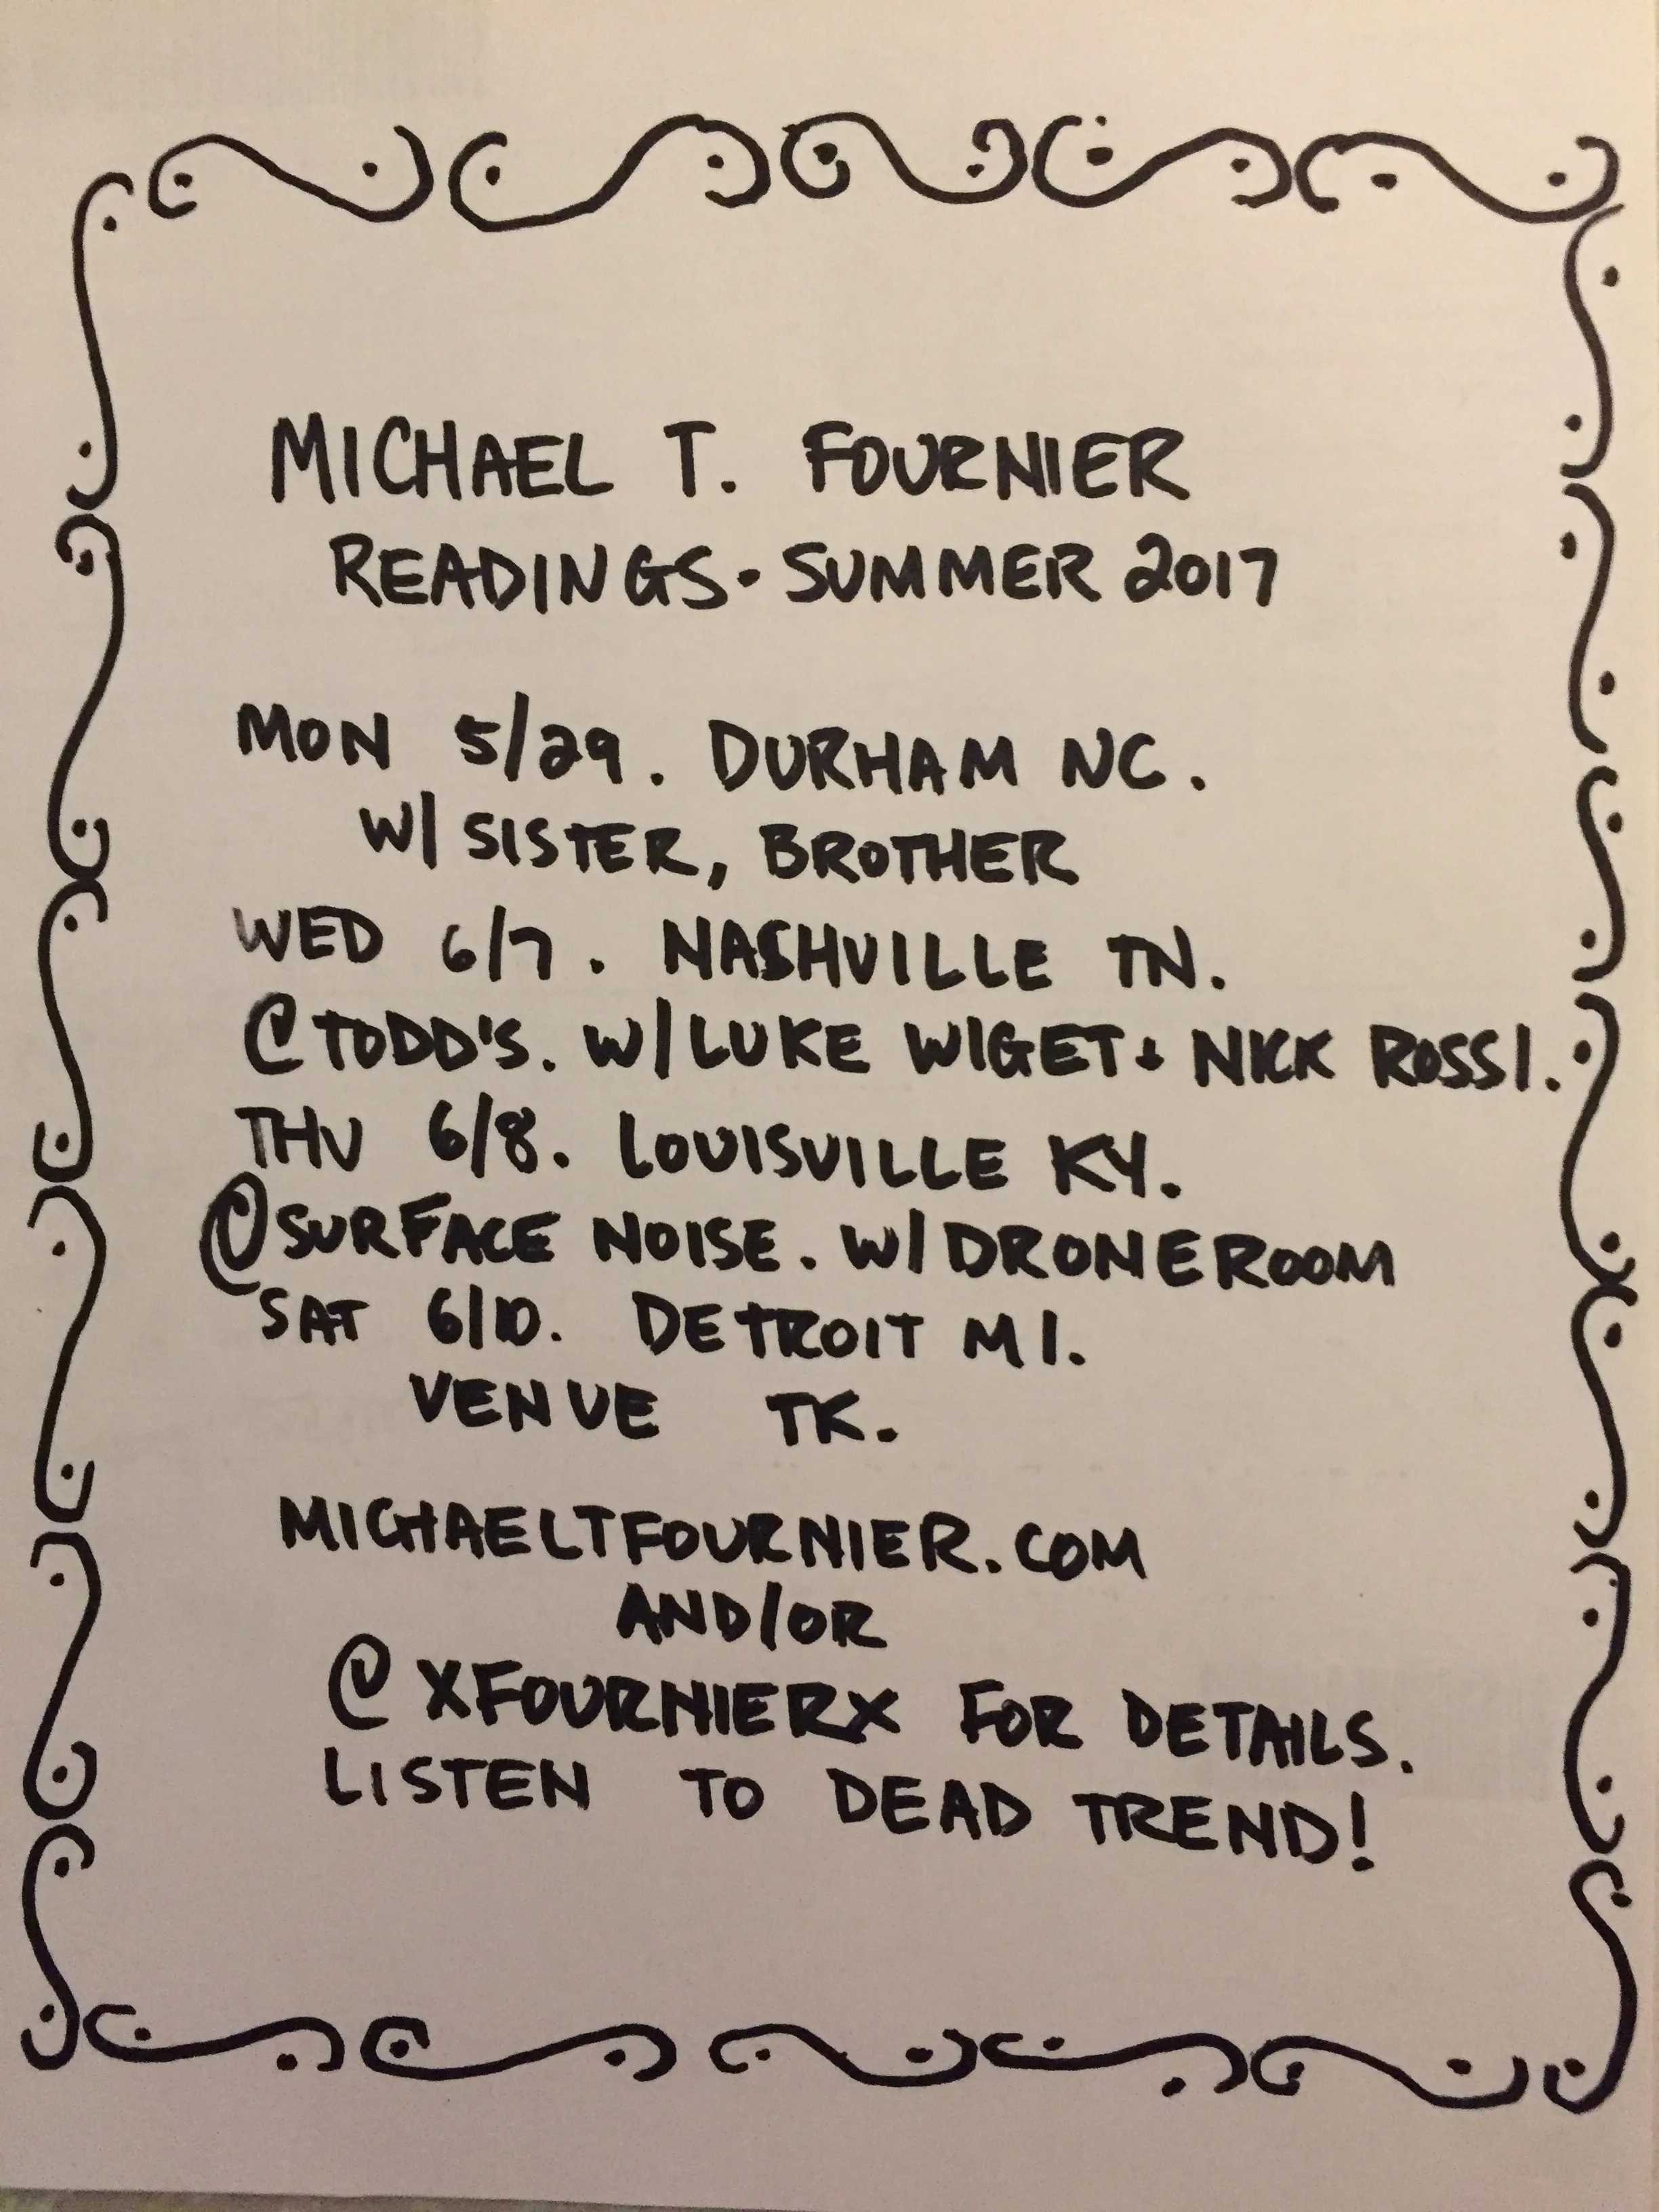 MICHAEL T. FOURNIER
READINGS · SUMMER 2017
MON 5/29. DURHAM NC.
W/ SISTER, BROTHER
WED 6/7. NASHVILLE TN.
@TODD'S. W/LUKE WIGET + NICK ROSSI.
THU 6/8. LOUISVILLE KY.
@SURFACE NOISE. W/DRONEROOM
SAT 6/10. DETROIT MI.
VENUE TK.
MICHAELTFOURNIER.COM
AND/OR
@XFOURNIERX FOR DETAILS.
LISTEN TO DEAD TREND!